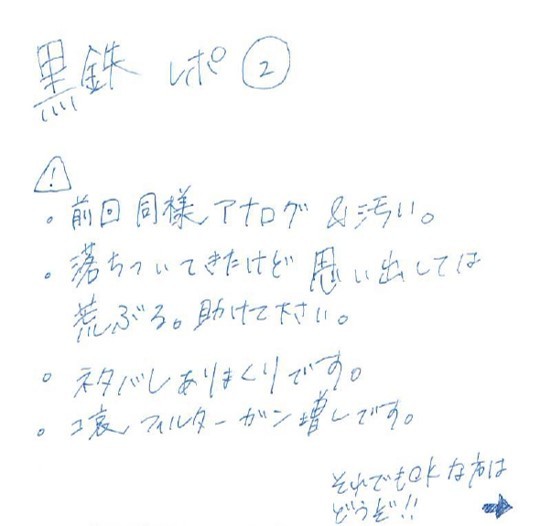 黒鉄 レポ ②
⚠
・前回同様アナログ&汚い。
・落ちついてきたけど思い出しては
荒ぶる。助けて下さい。
・ネタバレありまくりです。
・コ哀フィルターガン増しです。
それでもOKな方は
どうぞ!! ➡